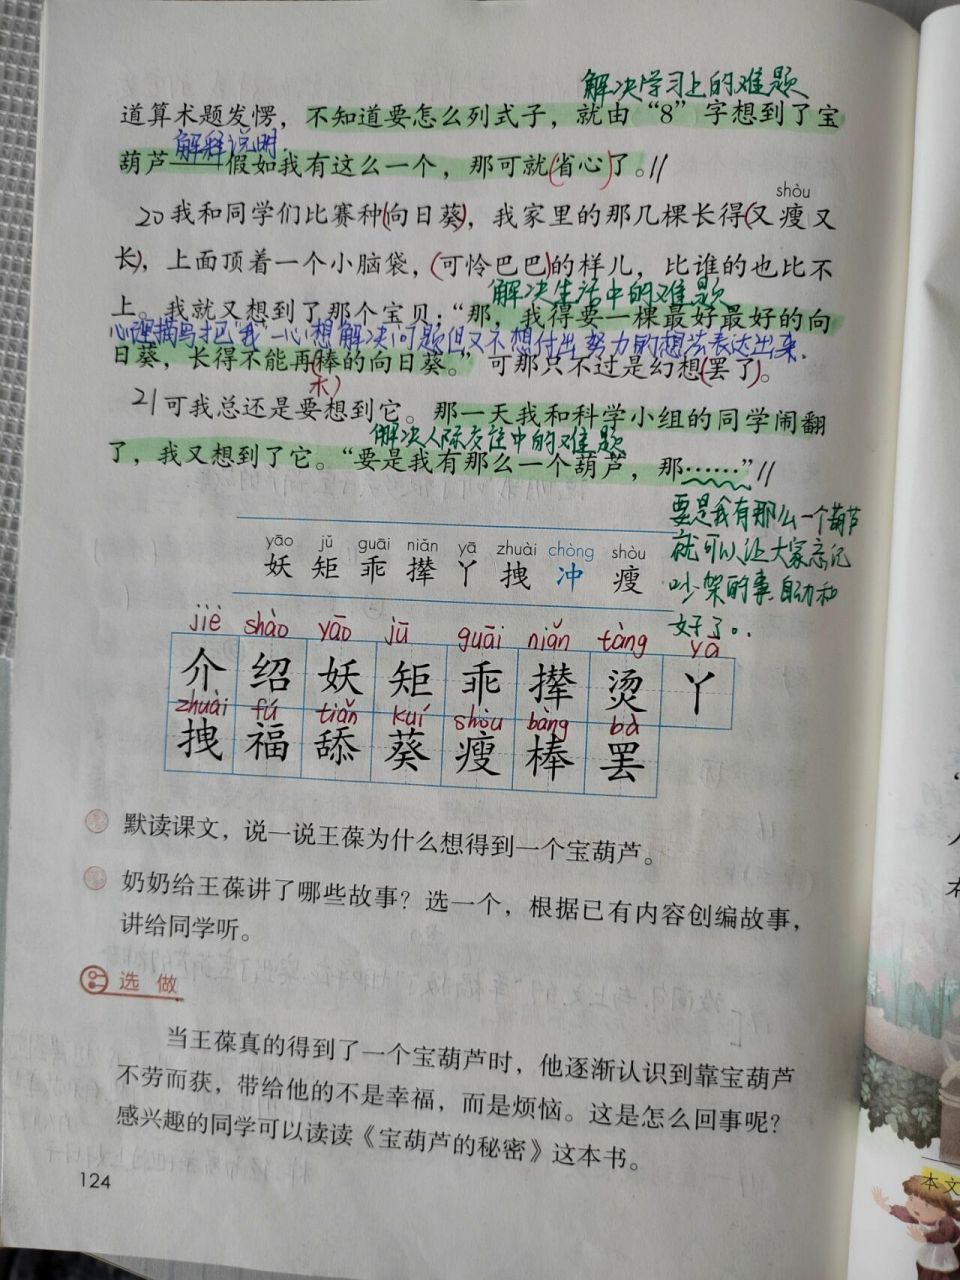 解决学习上的难题
道算术题发愣，不知道要怎么列式子，就由“8”字想到了宝
解释说明.
葫芦——假如我有这么一个，那可就(省心)了。//
shòu
20我和同学们比赛种(向日葵)，我家里的那几棵长得(又瘦又
长)，上面顶着一个小脑袋，(可怜巴巴)的样儿，比谁的也比不
解决生活中的难题
上。我就又想到了那个宝贝：“那，我得要一棵最好最好的向
心理描写才把“我”一心想解决问题但又不想付出努力的想法表达出来.
日葵，长得不能再(棒的向日葵。”可那只不过是幻想(罢了)。
木)
21可我总还是要想到它。那一天我和科学小组的同学闹翻
解决人际交往中的难题
了，我又想到了它。“要是我有那么一个葫芦，那……”//
要是我有那么一个葫芦
就可以让大家忘记
吵架的事,自动和
好了。
yāo jǔ guāi niǎn yā zhuài chòng shòu
妖 矩 乖 撵 丫 拽 冲 瘦
jiè shào yāo jǔ guāi niǎn tàng yā
介 绍 妖 矩 乖 撵 烫 丫
zhuài fú tiǎn kuí shòu bàng bà
拽 福 舔 葵 瘦 棒 罢
默读课文，说一说王葆为什么想得到一个宝葫芦。
奶奶给王葆讲了哪些故事？选一个，根据已有内容创编故事，
讲给同学听。
选做
当王葆真的得到了一个宝葫芦时，他逐渐认识到靠宝葫芦
不劳而获，带给他的不是幸福，而是烦恼。这是怎么回事呢？
感兴趣的同学可以读读《宝葫芦的秘密》这本书。
124
本文